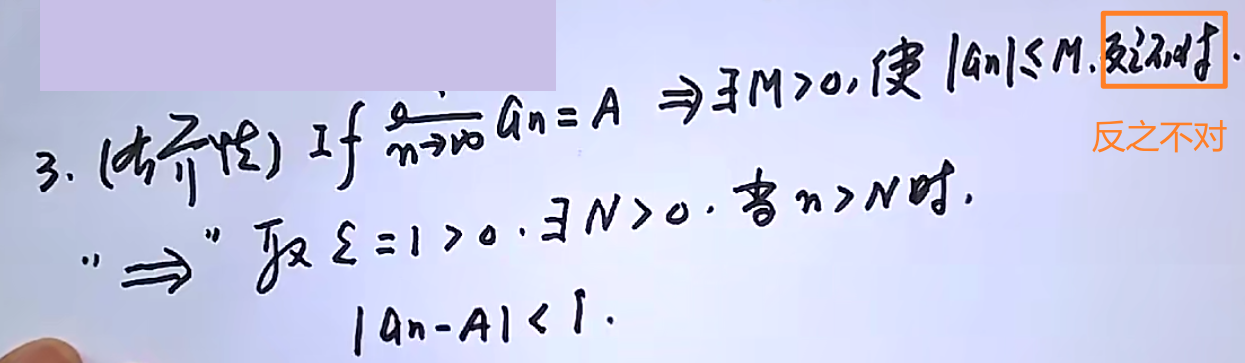 3. (有界性) If lim n→∞ an = A ⇒ ∃M>0, 使 |an|≤M. 反之不对.
反之不对
"⇒" 取 ε=1>0. ∃N>0. 当 n>N时.
|an-A|<1.